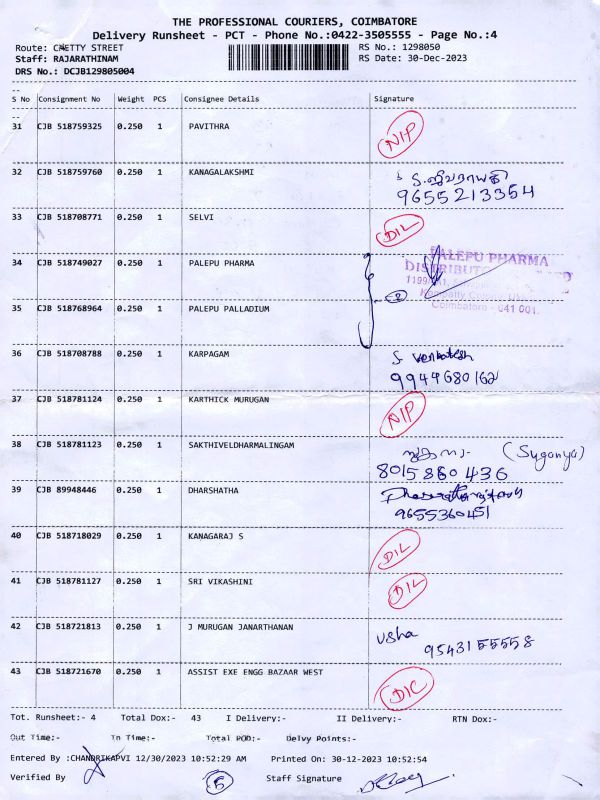 THE PROFESSIONAL COURIERS, COIMBATORE
Delivery Runsheet - PCT - Phone No.:0422-3505555 - Page No.:4
Route: CHETTY STREET RS No.: 1298050
Staff: RAJARATHINAM RS Date: 30-Dec-2023
DRS No.: DCJB129805004
S No Consignment No Weight PCS Consignee Details Signature
31 CJB 518759325 0.250 1 PAVITHRA NIP
32 CJB 518759760 0.250 1 KANAGALAKSHMI
9655213354
33 CJB 518708771 0.250 1 SELVI DIL
34 CJB 518749027 0.250 1 PALEPU PHARMA PALEPU PHARMA
Coimbatore - 641 001.
35 CJB 518768964 0.250 1 PALEPU PALLADIUM 2
36 CJB 518708788 0.250 1 KARPAGAM S. Venkatesh
9944680162
37 CJB 518781124 0.250 1 KARTHICK MURUGAN NIP
38 CJB 518781123 0.250 1 SAKTHIVELDHARMALINGAM (Suganya)
8015860436
39 CJB 89948446 0.250 1 DHARSHATHA
9655360451
40 CJB 518718029 0.250 1 KANAGARAJ S DIL
41 CJB 518781127 0.250 1 SRI VIKASHINI DIL
42 CJB 518721813 0.250 1 J MURUGAN JANARTHANAN usha 9543155558
43 CJB 518721670 0.250 1 ASSIST EXE ENGG BAZAAR WEST DIC
Tot. Runsheet:- 4 Total Dox:- 43 I Delivery:- II Delivery:- RTN Dox:-
Out Time:- In Time:- Total POD:- Delvy Points:-
Entered By :CHANDRIKAPVI 12/30/2023 10:52:29 AM Printed On: 30-12-2023 10:52:54
Verified By 5 Staff Signature